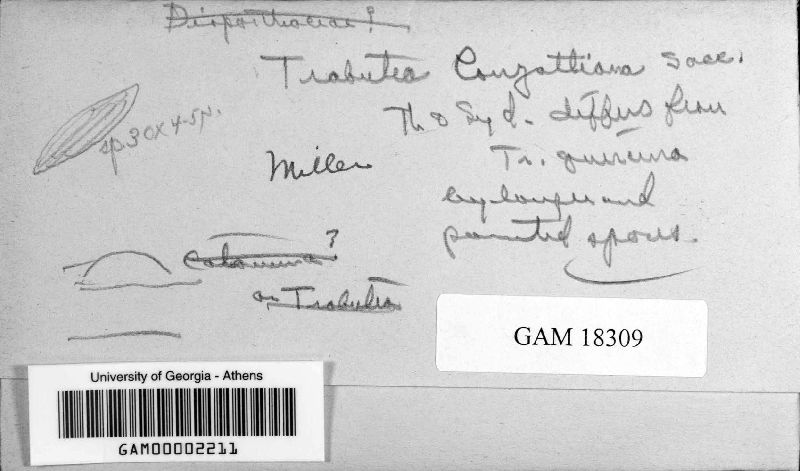 Diaporthaceae?
Trabutea Conzattiana Sacc.
Th & Syd. differs from
Tr. quercina
by longer and
pointed spores.
sp 30 x 4-5µ.
Miller
?
or Trabutea
GAM 18309
University of Georgia - Athens
GAM00002211